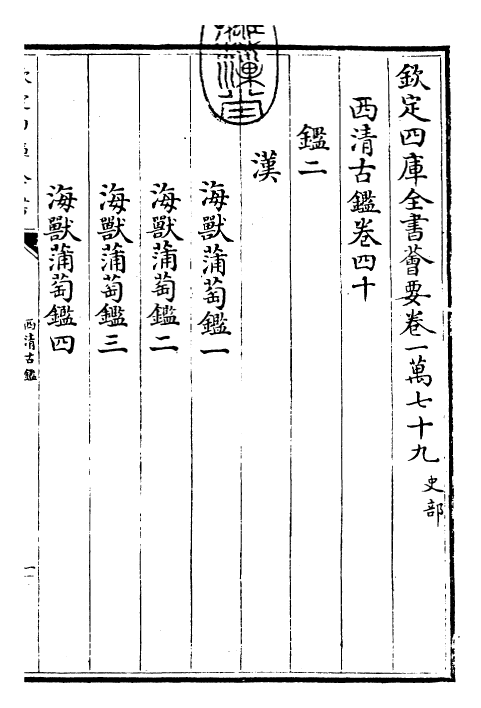 欽定四庫全書薈要卷一萬七十九
史部
西清古鑑卷四十
鑑二
漢
海獸蒲萄鑑一
海獸蒲萄鑑二
海獸蒲萄鑑三
海獸蒲萄鑑四
西清古鑑
一